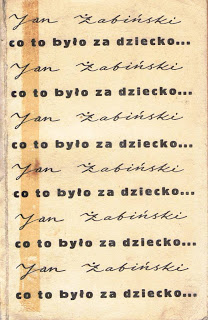 Jan Żabiński
co to było za dziecko...
Jan Żabiński
co to było za dziecko...
Jan Żabiński
co to było za dziecko...
Jan Żabiński
co to było za dziecko...
Jan Żabiński
co to było za dziecko...
Jan Żabiński
co to było za dziecko...